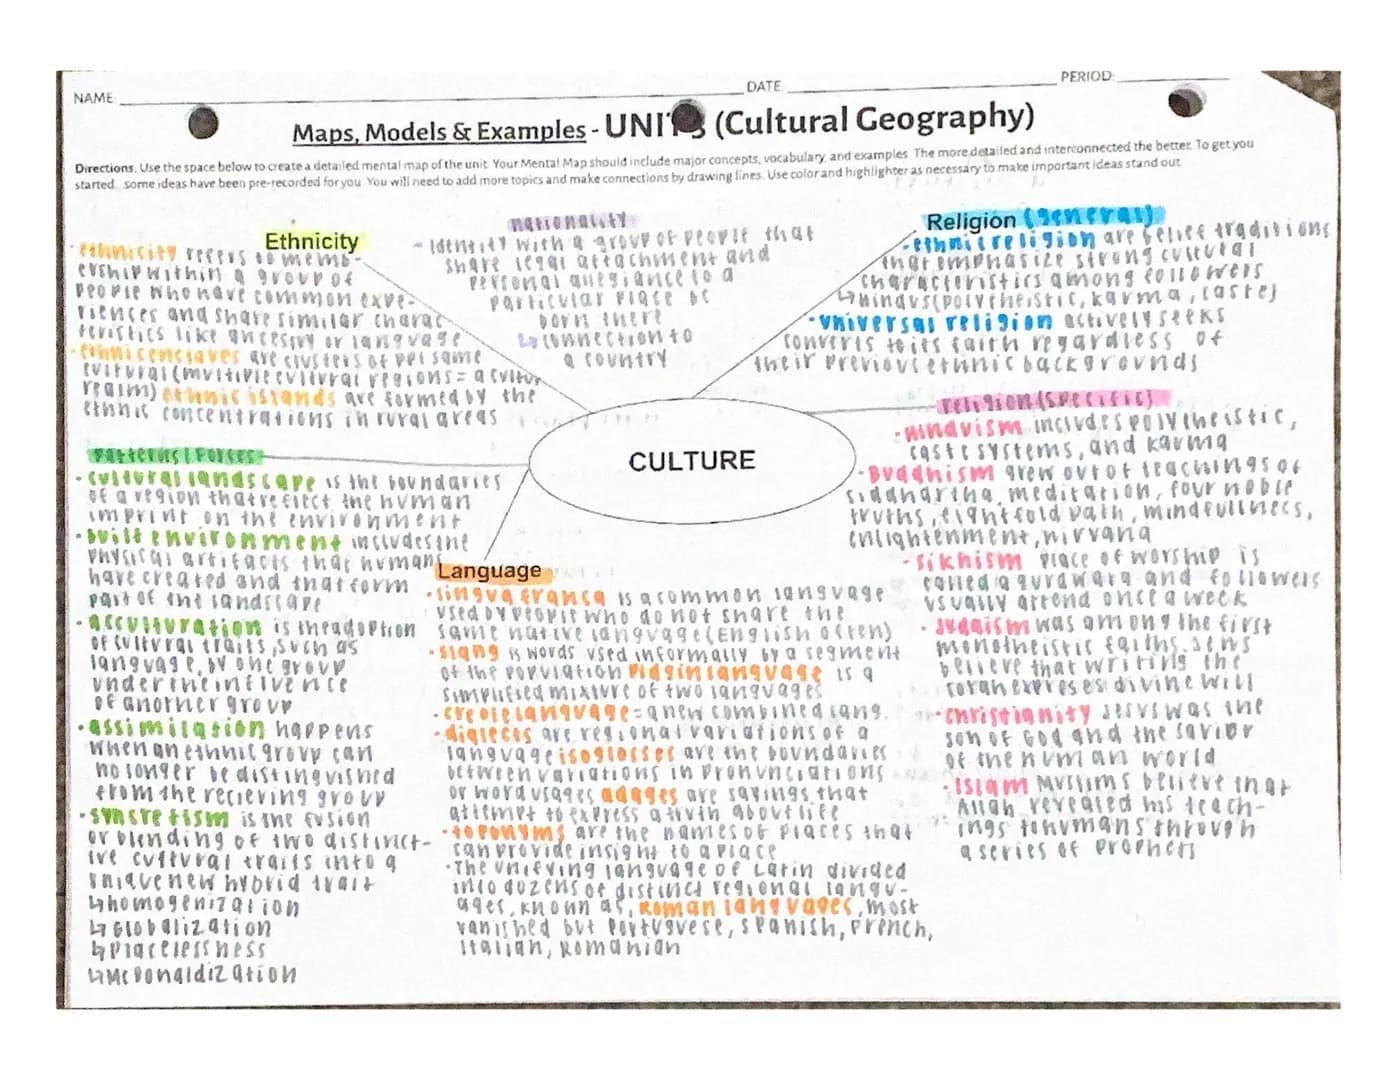 NAME: DATE: PERIOD:
Maps, Models & Examples - UNIT 3 (Cultural Geography)
Directions: Use the space below to create a detailed mental map of the unit. Your Mental Map should include major concepts, vocabulary, and examples. The more detailed and interconnected the better. To get you
started, some ideas have been pre-recorded for you. You will need to add more topics and make connections by drawing lines. Use color and highlighter as necessary to make important ideas stand out.
Ethnicity
• ethnicity refers to memb-
ership within a group of
people who have common expe-
riences and share similar charac
teristics like ancestry or language
• ethnic enclaves are clusters of ppl same
cultural (multiple cultural regions = a cultur
realm) ethnic islands are formed by the
ethnic concentrations in rural areas
nationality
- identity with a group of people that
share legal attachment and
personal allegiance to a
particular place bc
born there
↳ connection to
a country
Religion (general)
• ethnic religion are belief traditions
that emphasize strong cultural
characteristics among followers
↳ hindus (polytheistic, karma, caste)
• universal religion actively seeks
converts to its faith regardless of
their previous ethnic backgrounds
CULTURE
religion (specific)
• hinduism includes polytheistic,
caste systems, and karma
• Buddhism grew out of teachings of
siddhartha, meditation, four noble
truths, eightfold path, mindfullness,
enlightenment, nirvana
• sikhism place of worship is
called a gurdwara and followers
usually attend once a week
• Judaism was among the first
monotheistic faiths. Jews
believe that writing the
torah expreses divine will
• christianity Jesus was the
son of God and the savior
of the human world
• Islam Muslims believe that
Allah revealed his teach-
ings to humans through
a series of prophets
Patterns/Forses
• cultural landscape is the boundaries
of a region that reflect the human
imprint on the environment
• built environment includes the
physical artifacts that humans
have created and that form
part of the landscape
• acculturation is the adoption
of cultural traits, such as
language, by one group
under the influence
of another group
• assimilation happens
when an ethnic group can
no longer be distinguished
from the recieving group
• syncretism is the fusion
or blending of two distinct-
ive cultural traits into a
unique new hybrid trait
↳ homogenization
↳ Globalization
↳ Placelessness
↳ McDonaldization
Language
• lingua franca is a common language
used by people who do not share the
same native language (English often)
• slang is words used informally by a segment
of the population Pidgin language is a
simplified mixture of two languages
• creole language = a new combined lang.
• dialects are regional variations of a
language isoglosses are the boundaries
between variations in pronunciations
or word usages adages are sayings that
attempt to express a truth about life
• toponyms are the names of places that
can provide insight to a place
• The unifying language of Latin divided
into dozens of distinct regional langu-
ages, known as, Roman languages, most
vanished but Portuguese, Spanish, French,
Italian, Romanian